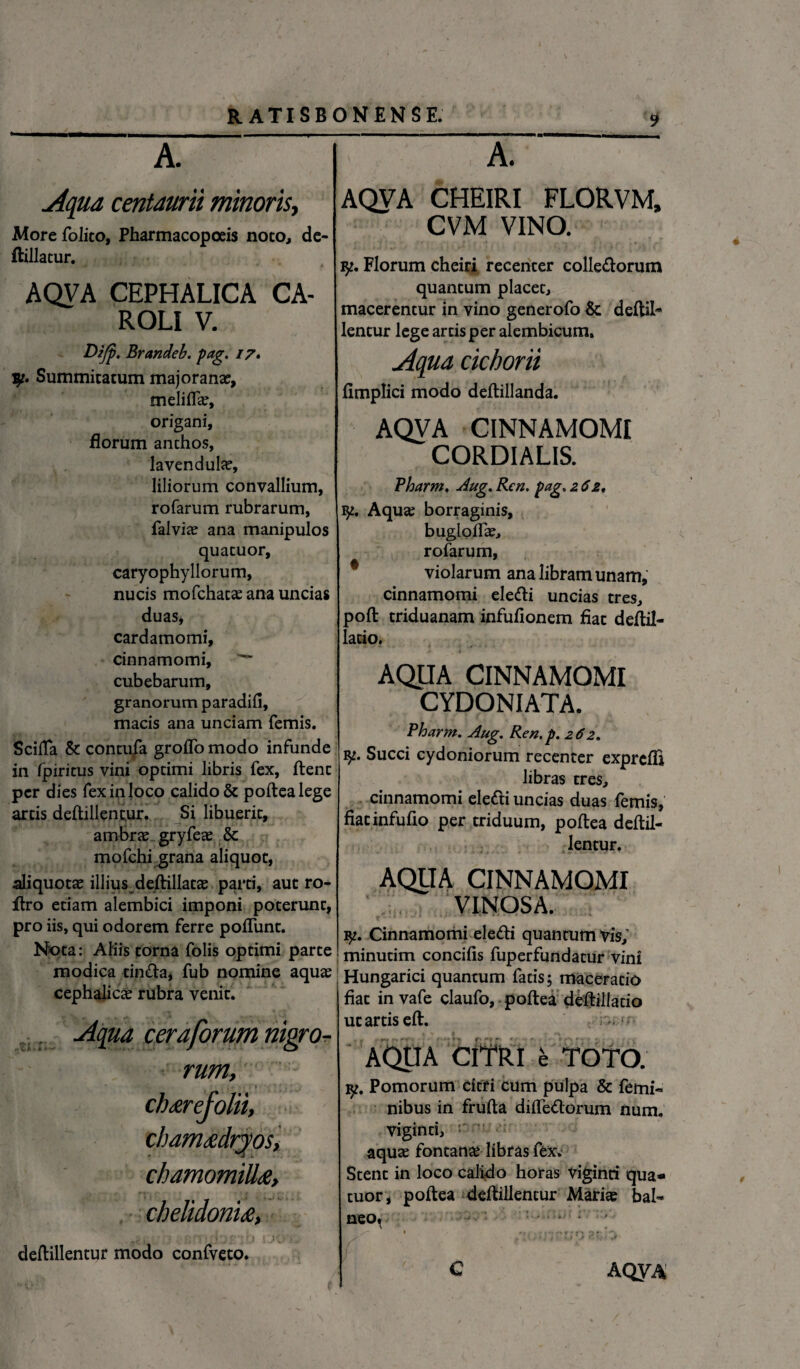 RATISBONENSE. 9
A.
Aqua centaurii minoris,
More ſolito, Pharmacopœis noto, de-
ſtillatur.
AQVA CEPHALICA CA-
ROLI V.
Diſp. Brandeb. pag. 17.
℞. Summitatum majoranæ,
meliſſæ,
origani,
florum anthos,
lavendulæ,
liliorum convallium,
roſarum rubrarum,
ſalviæ ana manipulos
quatuor,
caryophyllorum,
nucis moſchatæ ana uncias
duas,
cardamomi,
cinnamomi,
cubebarum,
granorum paradiſi,
macis ana unciam ſemis.
Sciſſa & contuſa groſſo modo infunde
in ſpiritus vini optimi libris ſex, ſtent
per dies ſex in loco calido & poſtea lege
artis deſtillentur. Si libuerit,
ambræ gryſeæ &
moſchi grana aliquot,
aliquotæ illius deſtillatæ parti, aut ro-
ſtro etiam alembici imponi poterunt,
pro iis, qui odorem ferre poſſunt.
Nota: Aliis torna ſolis optimi parte
modica tincta, ſub nomine aquæ
cephalicæ rubra venit.
Aqua ceraſorum nigro-
rum,
chærefolii,
chamædryos,
chamomillæ,
chelidoniæ,
deſtillentur modo conſveto.
A.
AQVA CHEIRI FLORVM,
CVM VINO.
℞. Florum cheiri recenter collectorum
quantum placet,
macerentur in vino generoſo & deſtil-
lentur lege artis per alembicum.
Aqua cichorii
ſimplici modo deſtillanda.
AQVA CINNAMOMI
CORDIALIS.
Pharm. Aug. Ren. pag. 262.
℞. Aquæ borraginis,
bugloſſæ,
roſarum,
violarum ana libram unam,
cinnamomi electi uncias tres,
poſt triduanam infuſionem fiat deſtil-
latio.
AQUA CINNAMOMI
CYDONIATA.
Pharm. Aug. Ren. p. 262.
℞. Succi cydoniorum recenter expreſſi
libras tres,
cinnamomi electi uncias duas ſemis,
fiat infuſio per triduum, poſtea deſtil-
lentur.
AQUA CINNAMOMI
VINOSA.
℞. Cinnamomi electi quantum vis,
minutim conciſis ſuperfundatur vini
Hungarici quantum ſatis; maceratio
fiat in vaſe clauſo, poſtea deſtillatio
ut artis eſt.
AQUA CITRI è TOTO.
℞. Pomorum citri cum pulpa & ſemi-
nibus in fruſta diſſectorum num.
viginti,
aquæ fontanæ libras ſex.
Stent in loco calido horas viginti qua-
tuor, poſtea deſtillentur Mariæ bal-
neo,
C AQVA